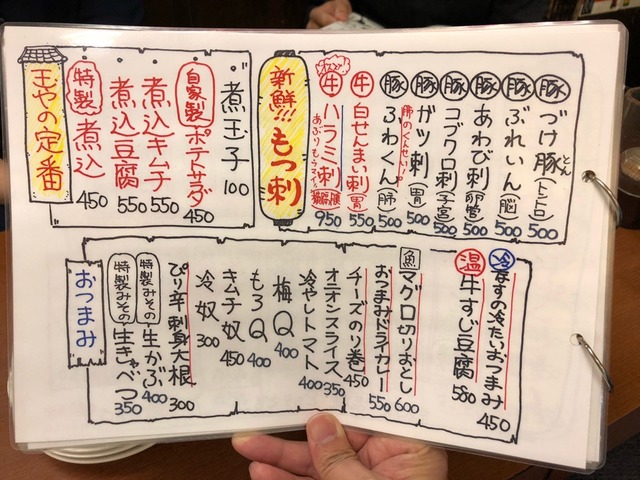 新鮮!!もつ刺
豚 づけ豚(トントロ) 500
豚 ぶれいん(脳) 500
豚 あわび刺(卵管) 500
豚 コブクロ刺(子宮) 500
豚 ガツ刺(胃) 500
豚 ふわくん(肺) 500
肺のくんせい!
牛 白せんまい刺(胃) 550
牛 ハラミ刺 950
あぶりもうろ
玉やの定番
煮玉子 100
自家製 ポテトサラダ 450
煮込キムチ 550
煮込豆腐 550
特製 煮込 450
おつまみ
冷 なすの冷たいおつまみ 450
温 牛すじ豆腐 580
魚 マグロ切りおとし 600
おつまみドライカレー 550
チーズのり巻 450
オニオンスライス 350
冷やしトマト 400
梅Q 400
もろQ 400
キムチ奴 450
冷奴 300
ぴり辛刺身大根 300
特製みその 生かぶ 400
特製みその 生きゃべつ 350